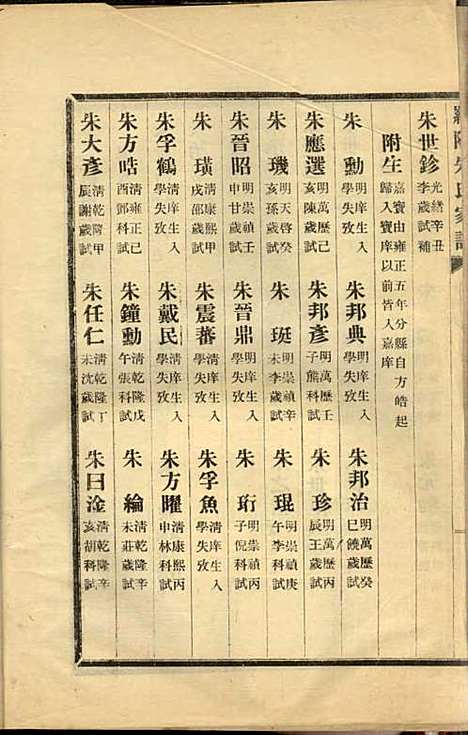 羅陽朱氏家譜
朱世鉁 光緒辛丑李歲試補
附生 嘉寶由雍正五年分縣自方皓起歸入寶庠以前皆入嘉庠
朱勳 明庠生入學失攷
朱邦典 明庠生入學失攷
朱邦治 明萬歷癸巳饒歲試
朱應選 明萬歷己亥陳歲試
朱邦彥 明萬歷壬子熊科試
朱珍 明萬歷丙辰王歲試
朱璣 明天啓癸亥孫歲試
朱珽 明崇禎辛未李歲試
朱琨 明崇禎庚午李科試
朱晉昭 明崇禎壬申甘歲試
朱晉鼎 明庠生入學失攷
朱珩 明崇禎丙子倪科試
朱璜 清康熙甲戌邵歲試
朱震蕃 清庠生入學失攷
朱孚魚 清庠生入學失攷
朱孚鶴 清庠生入學失攷
朱戴民 清庠生入學失攷
朱方曜 清康熙丙申林科試
朱方晧 清雍正己酉鄧科試
朱鐘勳 清乾隆戊午張科試
朱綸 清乾隆辛未莊歲試
朱大彥 清乾隆甲辰謝歲試
朱任仁 清乾隆丁未沈歲試
朱曰淦 清乾隆辛亥胡科試